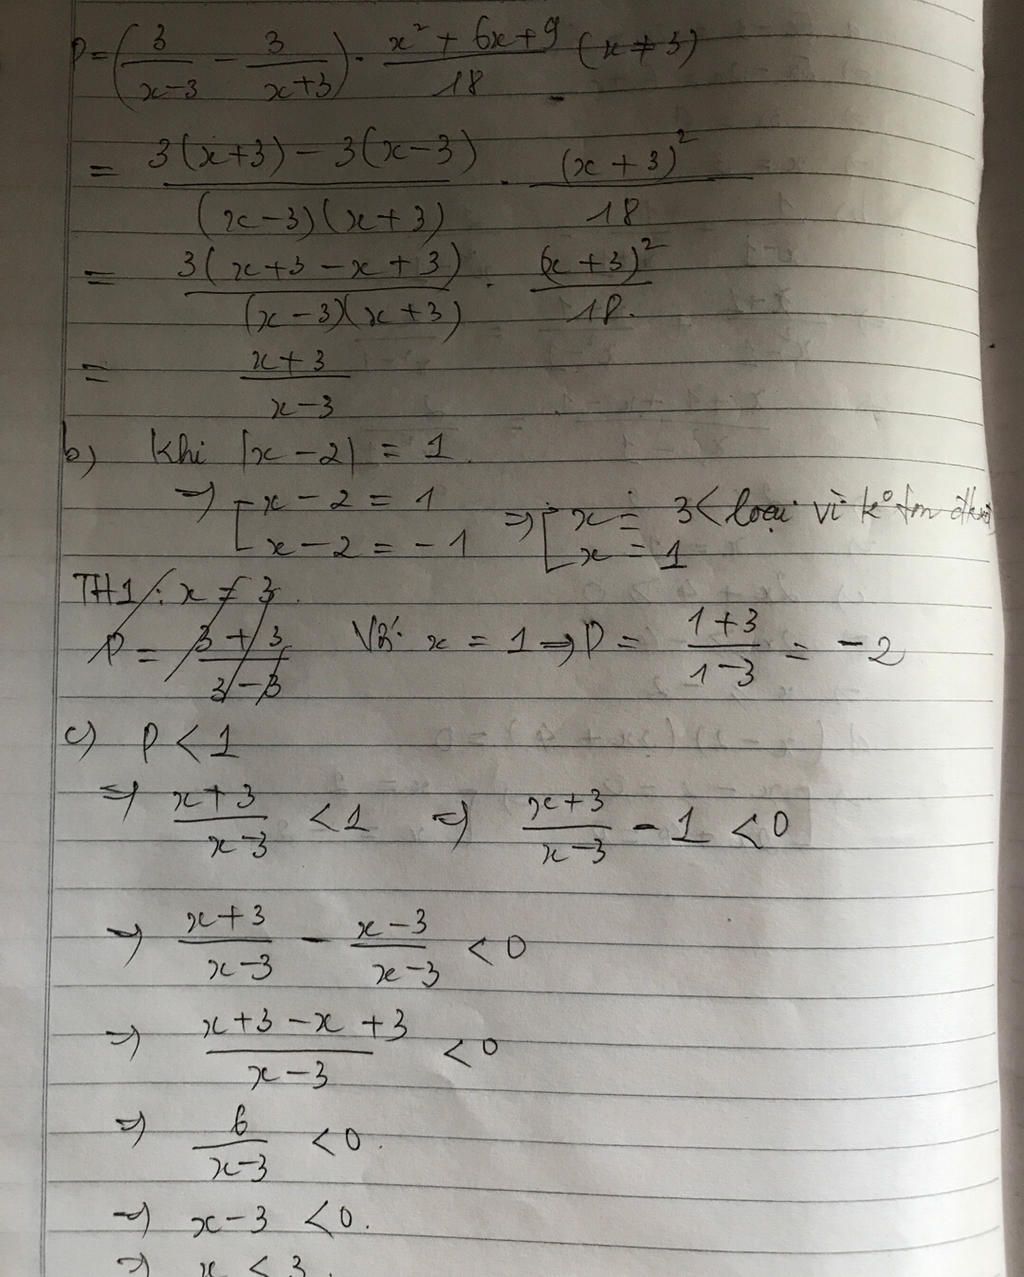 P = (3/(x-3) - 3/(x+3)) · (x² + 6x + 9)/18 (x ≠ 3)
= (3(x+3) - 3(x-3))/((x-3)(x+3)) · (x+3)²/18
= 3(x+3-x+3)/((x-3)(x+3)) · (x+3)²/18.
= (x+3)/(x-3)
b) Khi |x-2| = 1.
=> [ x-2 = 1 => [ x = 3 < loại vì k°
x-2 = -1 x = 1
TH1: x = 3.
P = (3+3)/(3-3) Với x = 1 => P = (1+3)/(1-3) = -2
c) P < 1
=> (x+3)/(x-3) < 1 => (x+3)/(x-3) - 1 < 0
=> (x+3)/(x-3) - (x-3)/(x-3) < 0
=> (x+3-x+3)/(x-3) < 0
=> 6/(x-3) < 0.
=> x-3 < 0.
=> x < 3.